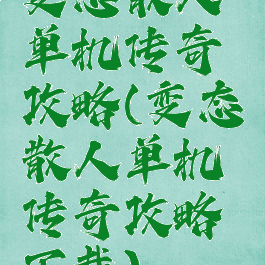 变态散人
单机传奇
攻略(变态
散人单机
传奇攻略
下载)